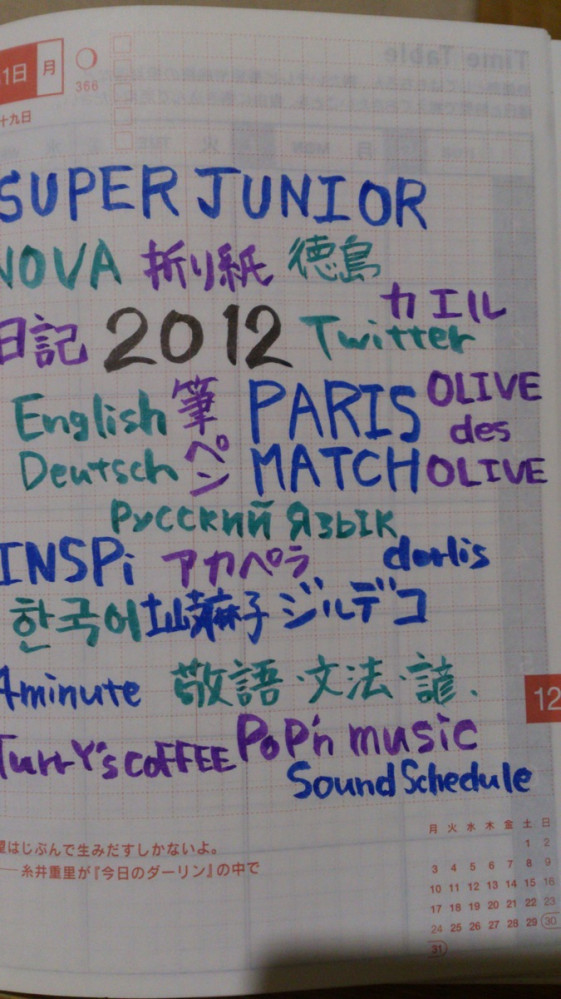 1日 月
366
十九日
SUPER JUNIOR
NOVA 折り紙 徳島
カエル
日記 2012 Twitter
English 筆ペン PARIS MATCH OLIVE des OLIVE
Deutsch
Русский Язык
INSPi アカペラ dorlis
한국어 土崎麻子 ジルデコ
4minute 敬語・文法・諺.
TuLLY's coFFEE PoP'n music
Sound Schedule
12
望はじぶんで生みだすしかないよ。
── 糸井重里が『今日のダーリン』の中で
月 火 水 木 金 土 日
1 2
3 4 5 6 7 8 9
10 11 12 13 14 15 16
17 18 19 20 21 22 23
24 25 26 27 28 29 30
31